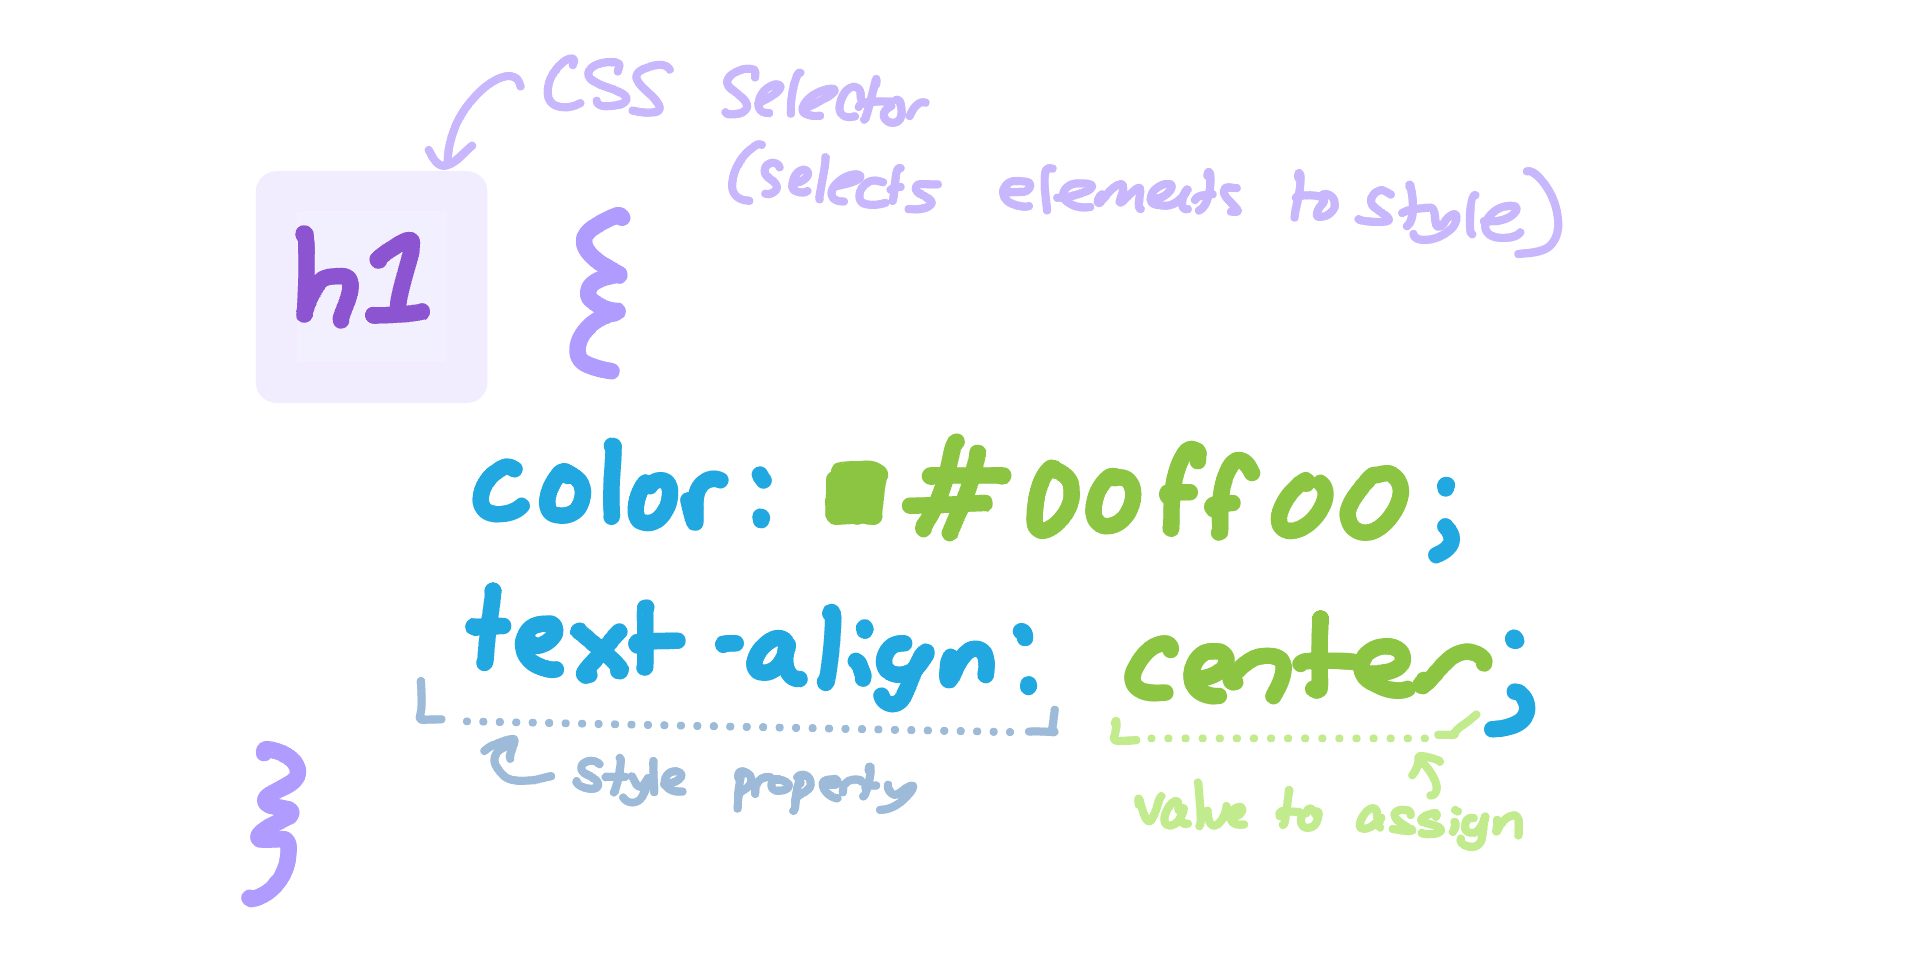 CSS Selector
(selects elements to style)
h1 {
color: #00ff00;
text-align: center;
style property
value to assign
}